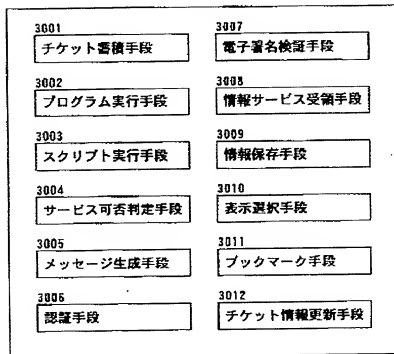 3001
チケット蓄積手段
3002
プログラム実行手段
3003
スクリプト実行手段
3004
サービス可否判定手段
3005
メッセージ生成手段
3006
認証手段
3007
電子署名検証手段
3008
情報サービス受領手段
3009
情報保存手段
3010
表示選択手段
3011
ブックマーク手段
3012
チケット情報更新手段